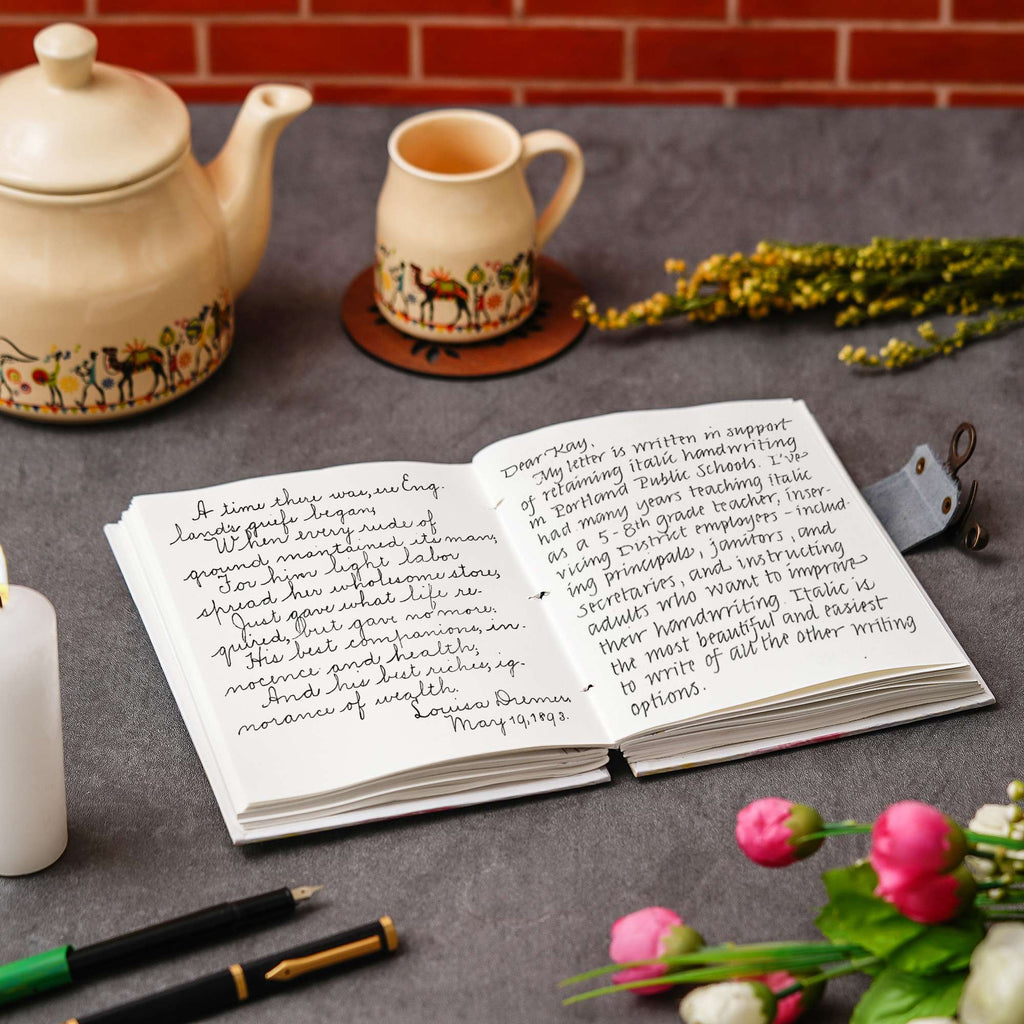 A time there was, ere Eng.
land's griefs began,
When every rude of
ground maintained its man,
For him light labor
spread her wholesome store,
Just gave what life re-
quired, but gave no more:
His best companions, in-
nocence and health;
And his best riches, ig-
norance of wealth.
Louisa Diemer,
May 19, 1893.
Dear Kay,
My letter is written in support
of retaining italic handwriting
in Portland Public Schools. I've
had many years teaching italic
as a 5-8th grade teacher, inser-
vicing District employees - includ-
ing principals, janitors, and
secretaries, and instructing
adults who want to improve
their handwriting. Italic is
the most beautiful and easiest
to write of all the other writing
options.